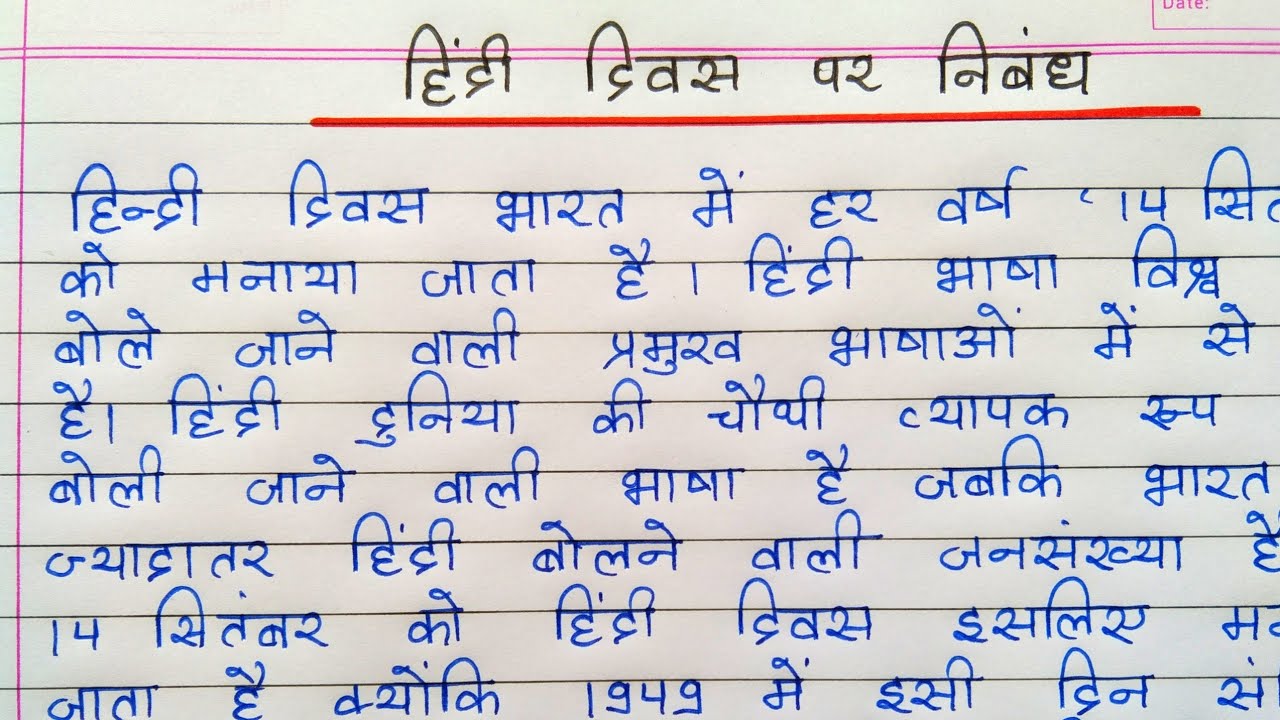 Date:
हिंदी दिवस पर निबंध
हिन्दी दिवस भारत में हर वर्ष '14
को मनाया जाता है। हिंदी भाषा विश्व
बोले जाने वाली प्रमुख भाषाओं में से
है। हिंदी दुनिया की चौथी व्यापक रूप
बोली जाने वाली भाषा है जबकि भारत
ज्यादातर हिंदी बोलने वाली जनसंख्या है
14 सितंबर को हिंदी दिवस इसलिए
जाता है क्योंकि 1949 में इसी दिन